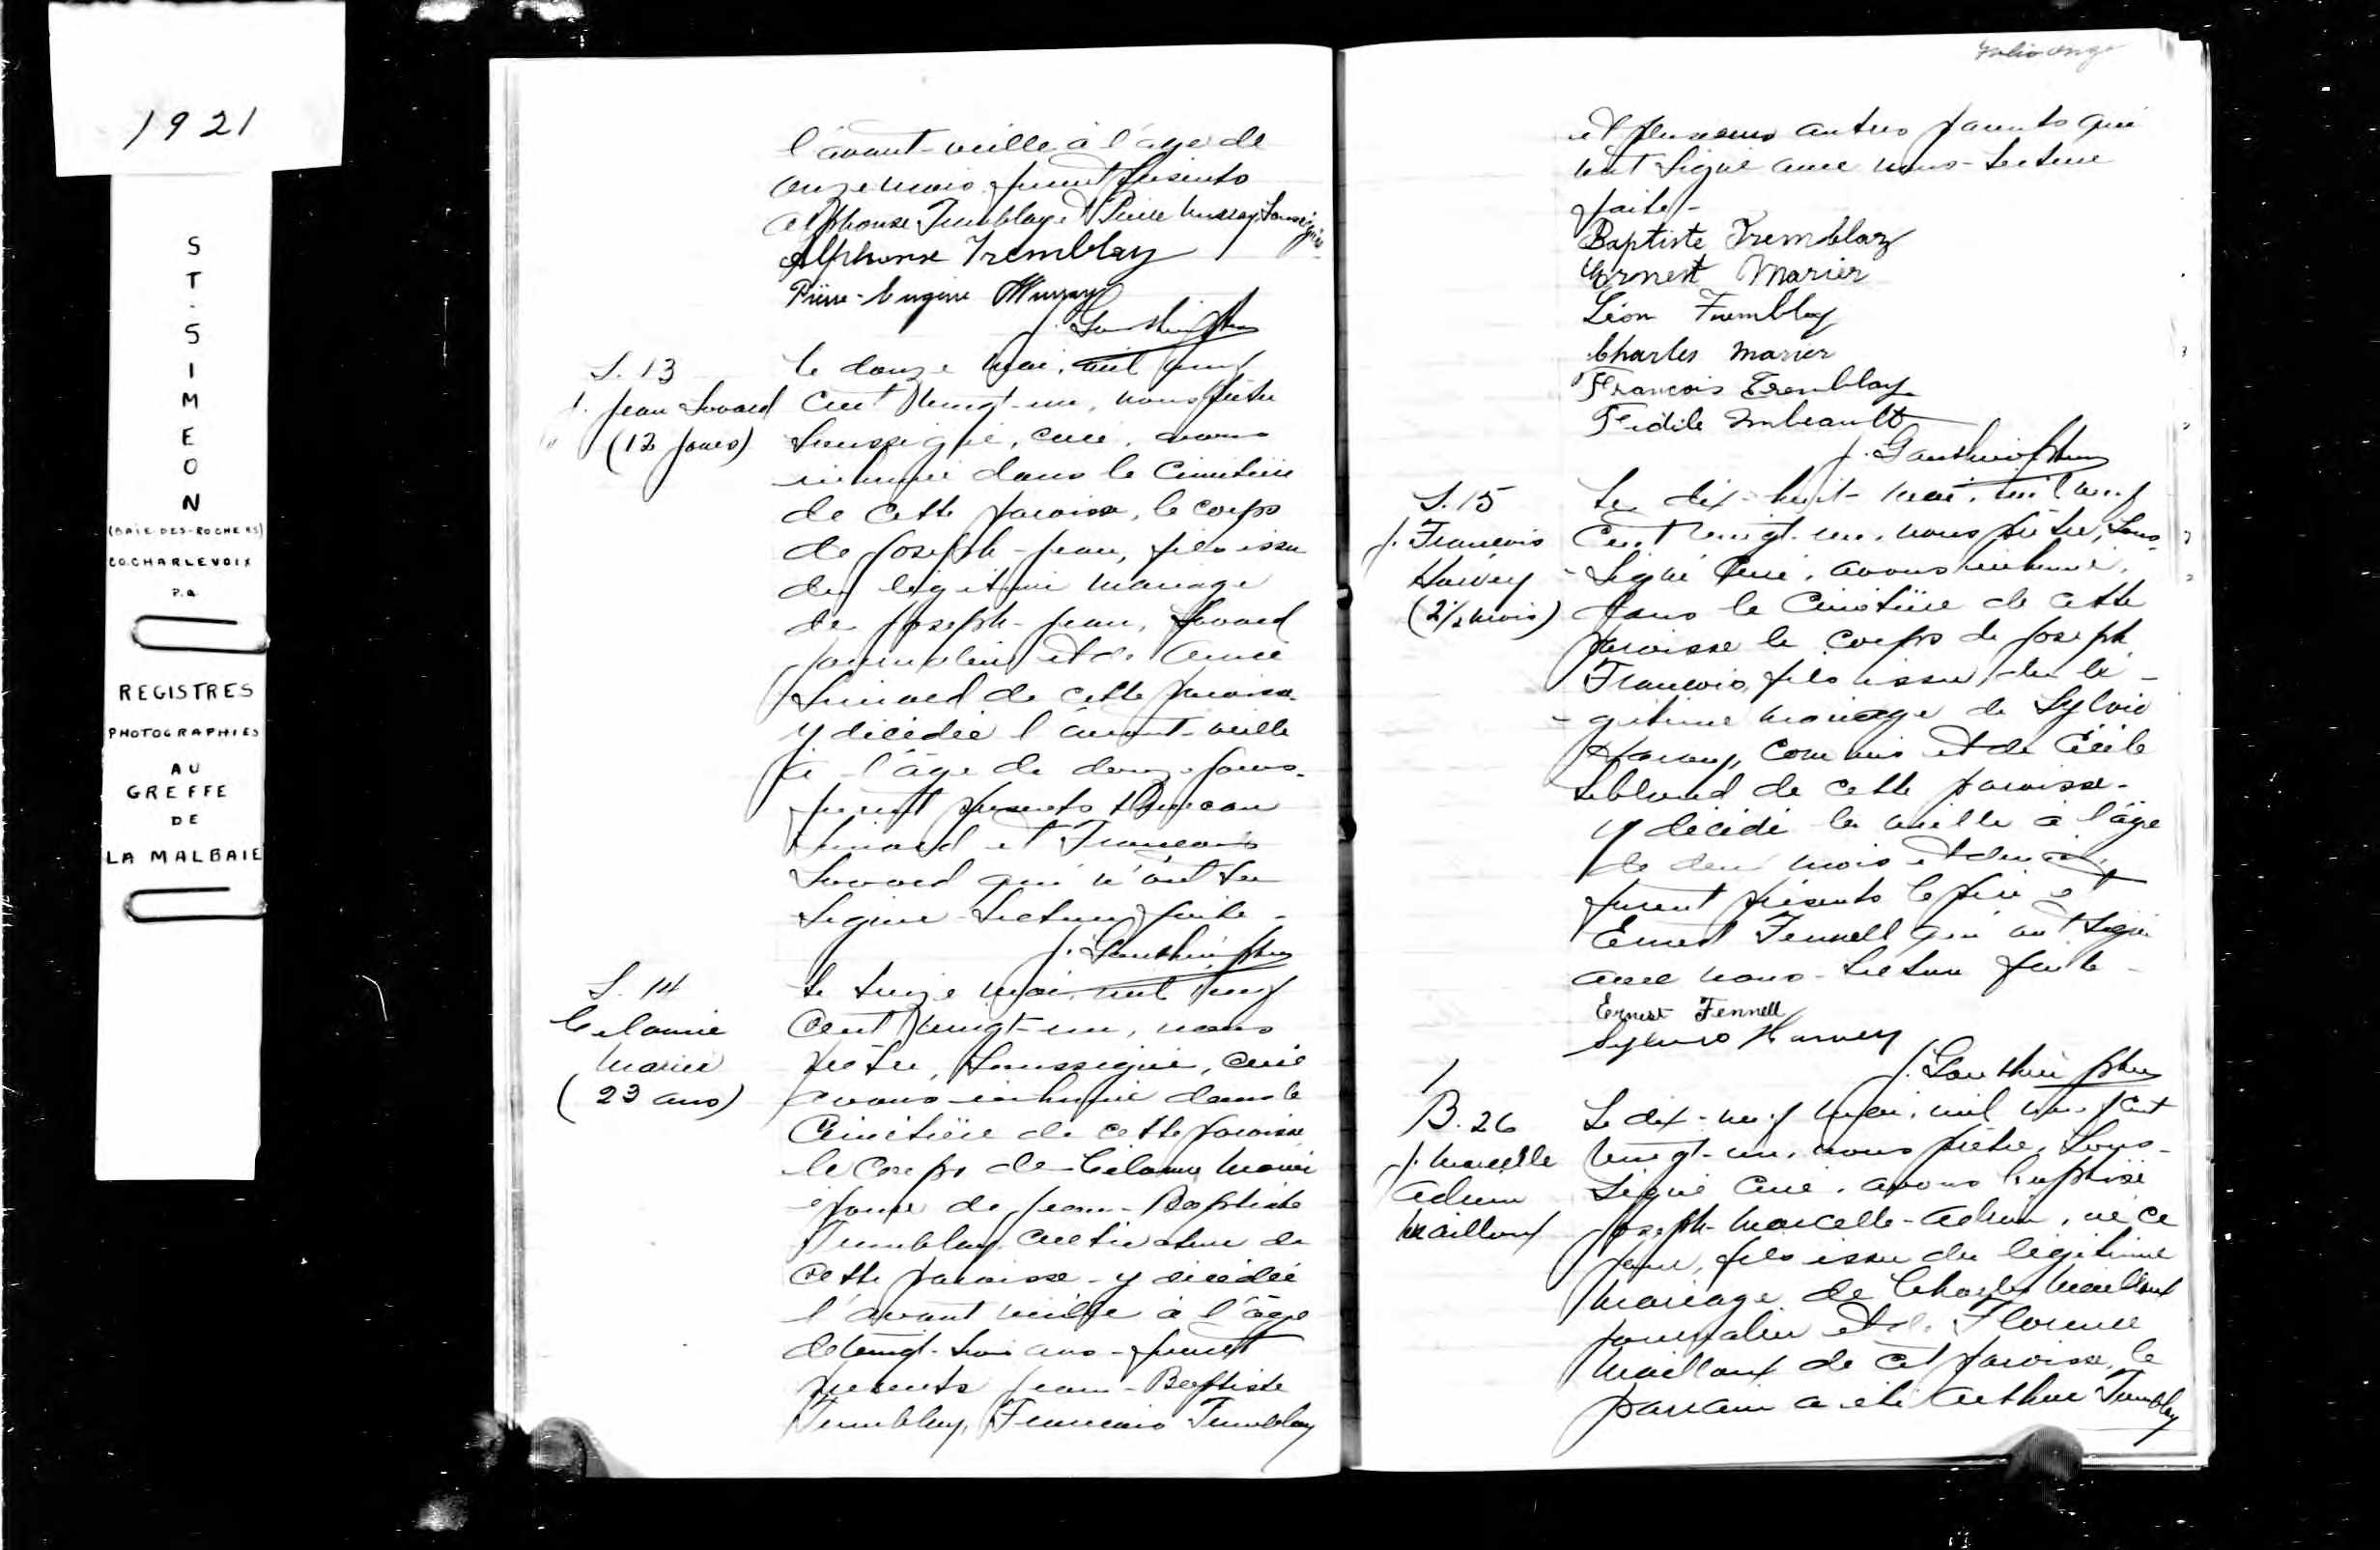 1921
ST. SIMEON
(BAIE-DES-ROCHERS)
CO. CHARLEVOIX
P.Q.
REGISTRES
PHOTOGRAPHIES
AU
GREFFE
DE
LA MALBAIE
l'avant-veille à l'age de
onze mois furent présents
Alphonse Tremblay et Pierre Murray, soussignés
Alphonse Tremblay
Pierre-Eugène Murray
J. Gauthier Ptre
S. 13
J. Jean Savard
(12 jours)
Le douze mai, mil neuf
cent vingt-un, nous prêtre
soussigné, curé, avons
inhumé dans le cimetière
de cette paroisse, le corps
de Joseph-Jean, fils issu
du légitime mariage
de Joseph-Jean, Savard
journalier et de
de cette paroisse
y décédée l'avant-veille
à l'âge de douze jours.
furent présents Duncan
et François
Savard qui n'ont su
signer. Lecture faite -
J. Gauthier Ptre
S. 14
Marier
(23 ans)
Le seize mai, mil neuf
cent vingt-un, nous
prêtre, soussigné, curé
avons inhumé dans le
cimetière de cette paroisse
le corps de Marier
épouse de Jean-Baptiste
Tremblay cultivateur de
cette paroisse - y décédée
l'avant veille à l'âge
de vingt-trois ans - furent
présents Jean-Baptiste
Tremblay, François Tremblay
Folio onze
et plusieurs autres parents qui
ont signé avec nous - Lecture
faite -
Baptiste Tremblay
Ernest Marier
Léon Tremblay
Charles Marier
François Tremblay
Fidèle Imbeault
J. Gauthier Ptre
S. 15
J. François
Harvey
(2 1/2 mois)
Le dix-huit mai, mil neuf
cent vingt-un, nous prêtre, sous-
-signé curé, avons inhumé,
dans le cimetière de cette
paroisse le corps de Joseph
François, fils issu du lé-
-gitime mariage de Sylvio
Harvey, commis et de Cécile
Leblond de cette paroisse -
y décédé la veille à l'âge
de deux mois et demi,
furent présents le père et
Ernest Fennell qui ont signé
avec nous - Lecture faite -
Ernest Fennell
Sylvio Harvey
J. Gauthier Ptre
B. 26
J. Marcelle
Adrien
Mailloux
Le dix-neuf mai, mil neuf cent
vingt-un, nous prêtre, sous-
signé curé, avons baptisé
Joseph-Marcelle-Adrien, né ce
jour, fils issu du légitime
mariage de Charles Mailloux
journalier et de Florence
Mailloux de cet paroisse, le
parrain a été Arthur Tremblay